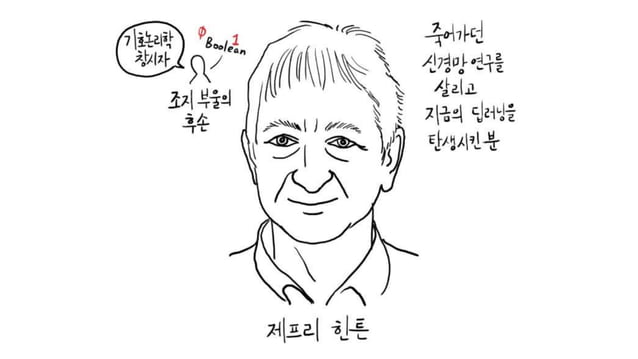 기호논리학
창시자
0
1
Boolean
조지 부울의
후손
죽어가던
신경망 연구를
살리고
지금의 딥러닝을
탄생시킨 분
제프리 힌튼